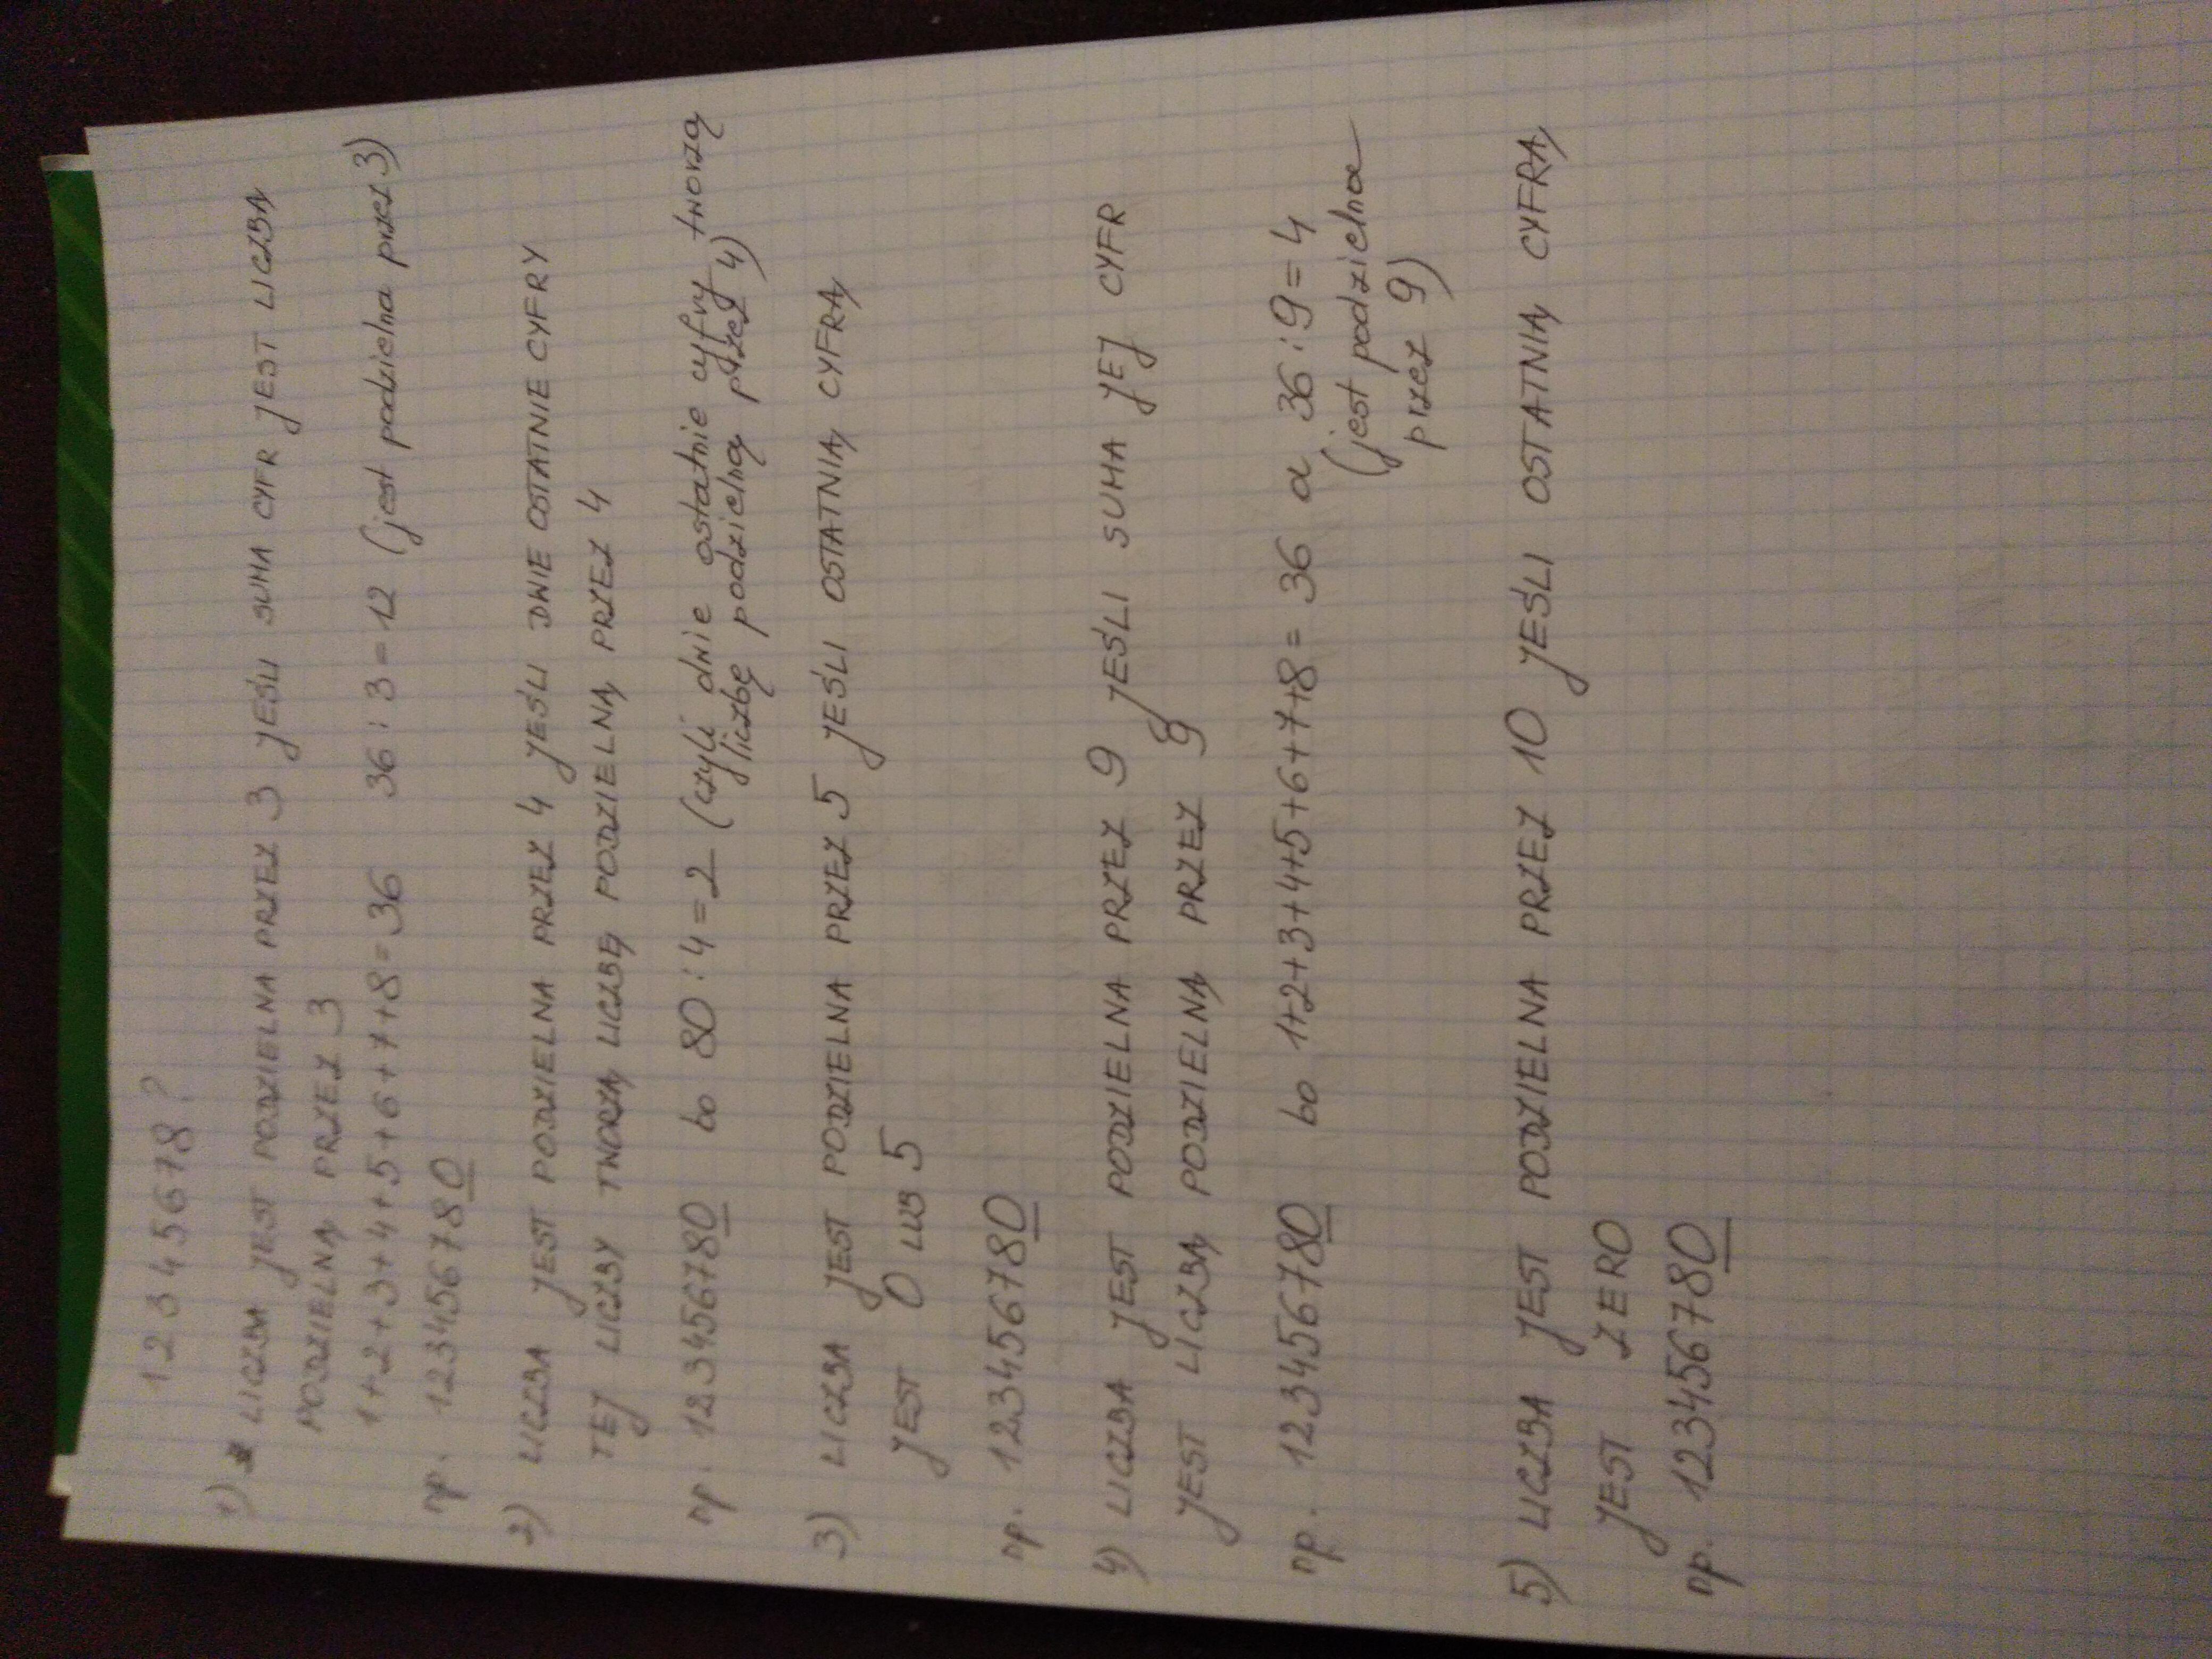 12345678?
1) LICZBA JEST PODZIELNA PRZEZ 3 JEŚLI SUMA CYFR JEST LICZBĄ
PODZIELNĄ PRZEZ 3
1+2+3+4+5+6+7+8=36 36:3=12 (jest podzielna przez 3)
np. 123456780
2) LICZBA JEST PODZIELNA PRZEZ 4 JEŚLI DWIE OSTATNIE CYFRY
TEJ LICZBY TWORZĄ LICZBĘ PODZIELNĄ PRZEZ 4
np. 123456780 bo 80:4=2 (czyli dwie ostatnie cyfry tworzą
liczbę podzielną przez 4)
3) LICZBA JEST PODZIELNA PRZEZ 5 JEŚLI OSTATNIĄ CYFRĄ
JEST 0 LUB 5
np. 123456780
4) LICZBA JEST PODZIELNA PRZEZ 9 JEŚLI SUMA JEJ CYFR
JEST LICZBĄ PODZIELNĄ PRZEZ 9
np. 123456780 bo 1+2+3+4+5+6+7+8=36 a 36:9=4
(jest podzielna
przez 9)
5) LICZBA JEST PODZIELNA PRZEZ 10 JEŚLI OSTATNIĄ CYFRĄ
JEST ZERO
np. 123456780